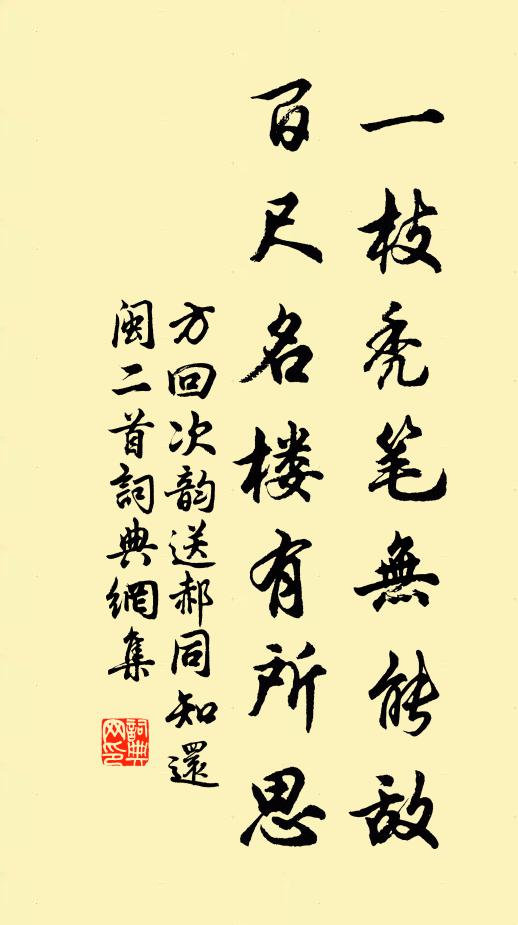 一枝秃笔無能敌
百尺名楼有所思
方回次韵送郝同知還
闽二首詞典網集
詞典網印